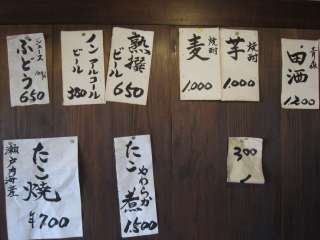 ジュース
ぶどう
650
ノンアルコール
ビール
350
熟撰
ビール
650
焼酎
麦
1000
焼酎
芋
1000
青森
田酒
1200
瀬戸内海産
たこ焼
¥700
やわらか
たこ煮
1500
300